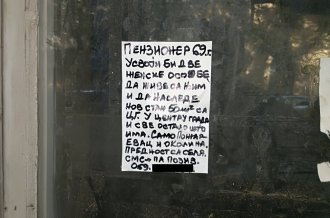 ПЕНЗИОНЕР 69.г
УСВОЈИ БИ ДВЕ
ЖЕНСКЕ ОСОБЕ
ДА ЖИВЕ СА ЊИМ
И ДА НАСЛЕДЕ
НОВ СТАН 50М² СА
ЦГ. У ЦЕНТРУ ГРАДА
И СВЕ ОСТАЛО ШТО
ИМА. САМО ПОЖАР
ЕВАЦ И ОКОЛИНА.
ПРЕДНОСТ СА СЕЛА.
СМС-ПА ПОЗИВ.
069.